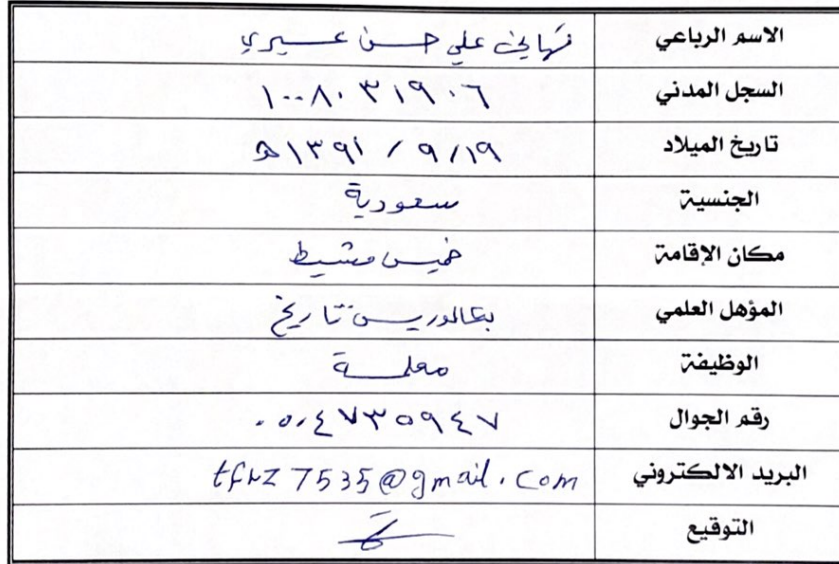 الاسم الرباعي تهاني علي حسن عسيري
السجل المدني ١٠٠٨٠٣١٩٠٦
تاريخ الميلاد ١٩/ ٩ / ١٣٩١ هـ
الجنسية سعودية
مكان الإقامة خميس مشيط
المؤهل العلمي بكالوريس تاريخ
الوظيفة معلمة
رقم الجوال ٠٥٠٤٧٣٥٩٤٧
البريد الالكتروني tfrz7535@gmail.com
التوقيع